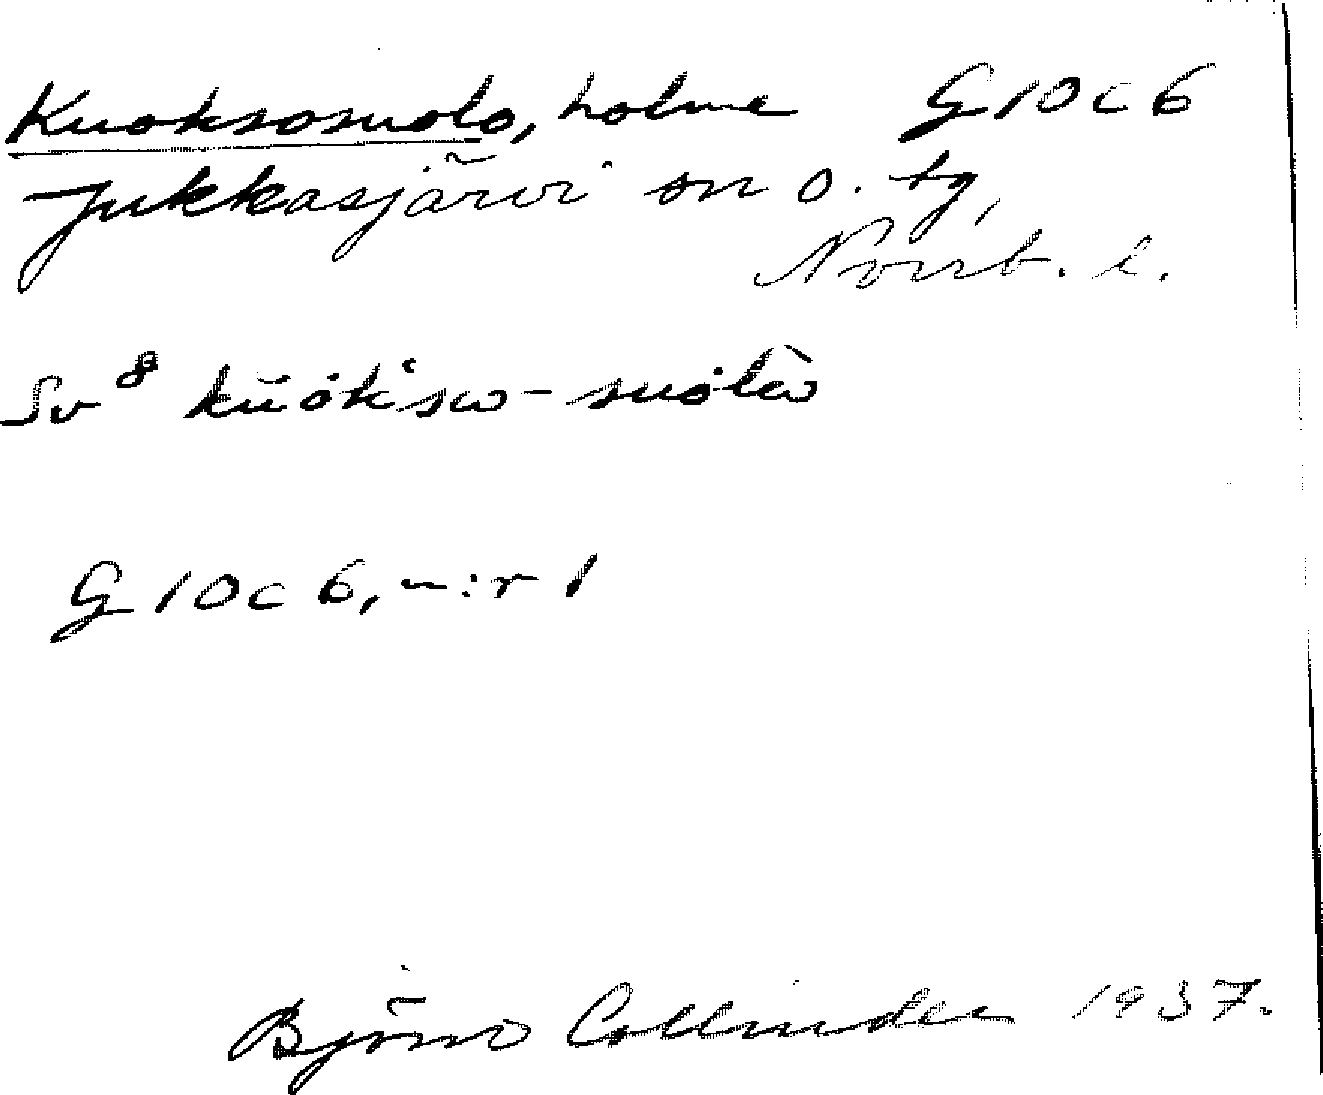 Kuoksosuolo, holme G10c6
Jukkasjärvi sn o. tg,
Norrb. l.
G10c6, n:r 1
Björn Collinder 1937.